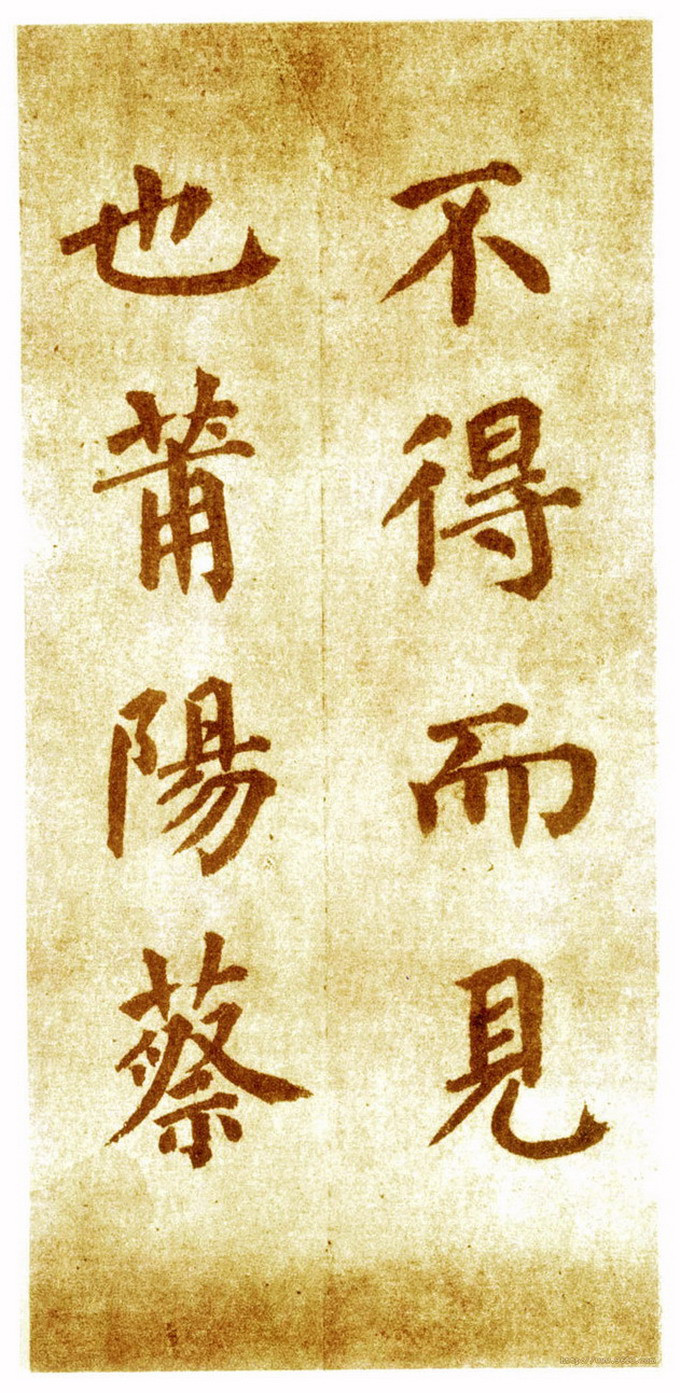 不得而見
也莆陽蔡